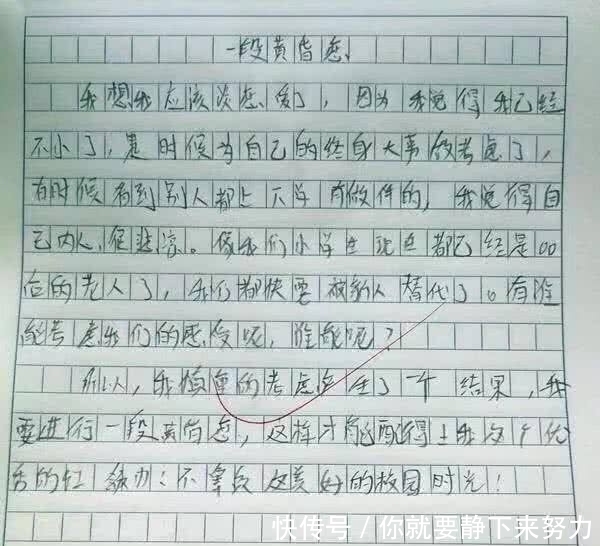 一段黄昏恋
我想我应该谈恋爱了，因为我觉得我已经
不小了，是时候为自己的终身大事做考虑了，
有时候看到别人都上下学有做伴的，我觉得自
己内人很悲凉。像我们小学生现在都已经是00
后的老人了，我们都快要被别人替代了。有谁
能考虑我们的感受呢，谁能呢？
所以，我慎重的考虑 了个结果，我
要进行一段黄昏恋，这样才能配得上我这个优
秀的红 ，不辜负这美好的校园时光！
快传号/你就要静下来努力